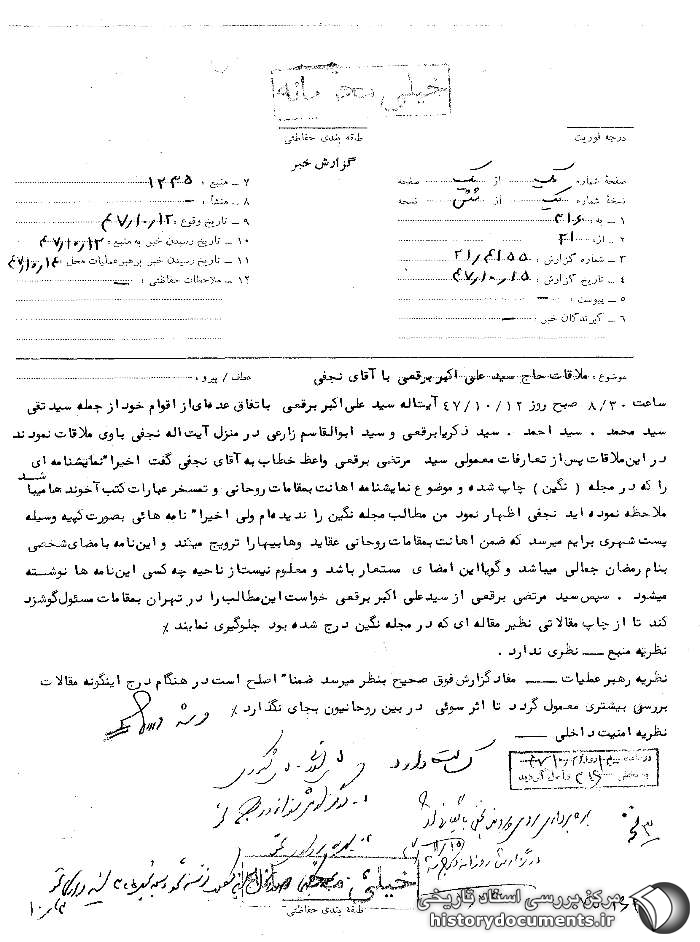 خیلی محرمانه
طبقه بندی حفاظتی
درجه فوریت
گزارش خبر
صفحه شماره یک از یک صفحه
نسخهٔ شماره یک از شش نسخه
۱ ـ به : ۳۱۶
۲ ـ از : ۲۱
۳ ـ شماره گزارش :
۴ ـ تاریخ گزارش : ۴۷/۱۰/۱۵
۵ ـ پیوست : ــ
۶ ـ گیرندگان خبر : ــ
۷ ـ منبع : ۱۲۳۵
۸ ـ منشأ : ــ
۹ ـ تاریخ وقوع : ۴۷/۱۰/۱۲
۱۰ ـ تاریخ رسیدن خبر به منبع : ۴۷/۱۰/۱۲
۱۱ ـ تاریخ رسیدن خبر برهبر عملیات محل : ۴۷/۱۰/۱۴
۱۲ ـ ملاحظات حفاظتی : ــ
موضوع : ملاقات حاج سید علی اکبر برقعی با آقای نجفی
عطف / پیرو :
ساعت ۸/۳۰ صبح روز ۴۷/۱۰/۱۲ آیت‌اله سید علی اکبر برقعی باتفاق عده‌ای از اقوام خود از جمله سید تقی
سید محمد . سید احمد . سید ذکریا برقعی و سید ابوالقاسم زارعی در منزل آیت اله نجفی باوی ملاقات نمودند
در این ملاقات پس از تعارفات معمولی سید مرتضی برقعی واعظ خطاب به آقای نجفی گفت اخیرا" نمایشنامه ای
را که در مجله ( نگین ) چاپ شده و موضوع نمایشنامه اهانت بمقامات روحانی و تمسخر عبارات کتب آخوند ها میباشد
ملاحظه نموده اید نجفی اظهار نمود من مطالب مجله نگین را ندیده‌ام ولی اخیرا" نامه هائی بصورت کپیه وسیله
پست شهری برایم میرسد که ضمن اهانت بمقامات روحانی عقاید وهابیها را ترویج میکند و این نامه با مضای شخصی
بنام رمضان جمالی میباشد و گویا این امضا ی مستعار باشد و معلوم نیست از ناحیه چه کسی این نامه ها نوشته
میشود . سپس سید مرتضی برقعی از سید علی اکبر برقعی خواست این مطالب را در تهران بمقامات مسئول گوشزد
کند تا از چاپ مقالاتی نظیر مقاله ای که در مجله نگین درج شده بود جلوگیری نمایند ٪
نظریه منبع ــ نظری ندارد .
نظریه رهبر عملیات ــ مفاد گزارش فوق صحیح بنظر میرسد ضمنا" اصلح است در هنگام درج اینگونه مقالات
بررسی بیشتری معمول گردد تا اثر سوئی در بین روحانیون بجای نگذارد ٪
نظریه امنیت داخلی ــ
خیلی محرمانه
طبقه بندی حفاظتی
مرکز بررسی اسناد تاریخی
historydocuments.ir